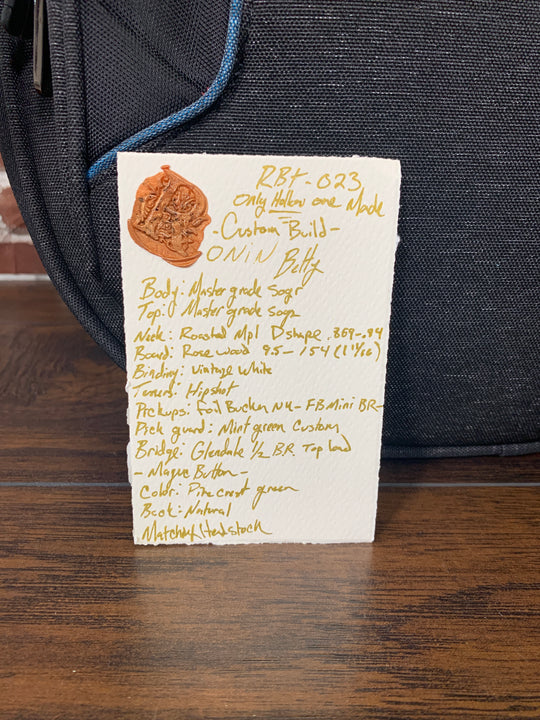 RBt-023
Only Hollow one Made
-Custom Build-
ONiN Betty
Body: Master grade Sogr
Top: Master grade Sogr
Neck: Roasted Mpl D shape .859-.94
Board: Rosewood 9.5-
Binding: Vintage White
Tuners: Hipshot
Pickups: Foil Bucker NK- FB Mini BR-
Pick guard: Mint green Custom
Bridge: Glendale 1/2 BR. Top load
- Button-
Color: green
Back: Natural
Headstock